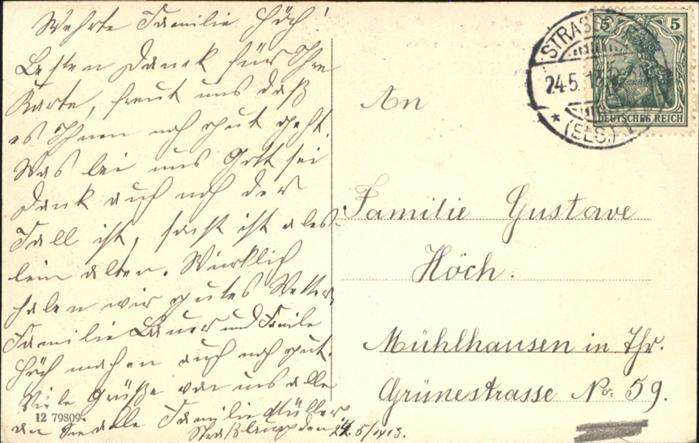 Wehrte Familie Höch!
Besten Dank für Ihre
Karte, freut uns daß
es Ihnen noch gut geht.
Was bei uns Gott sei
Dank auch noch der
Fall ist, sonst ist alles
beim alten. Wirklich
haben wir gutes Wetter.
Familie Bauer und Familie
Höch machen auch noch gut.
Viele Grüße von uns alle
an Sie alle Familie Müller.
Straßburg den 24.5/1913.
12 79809
STRASS
24.5.13
(ELS.)
5 5
DEUTSCHES REICH
An
Familie Gustave
Höch.
Mühlhausen in Thr.
Grünestrasse No. 59.